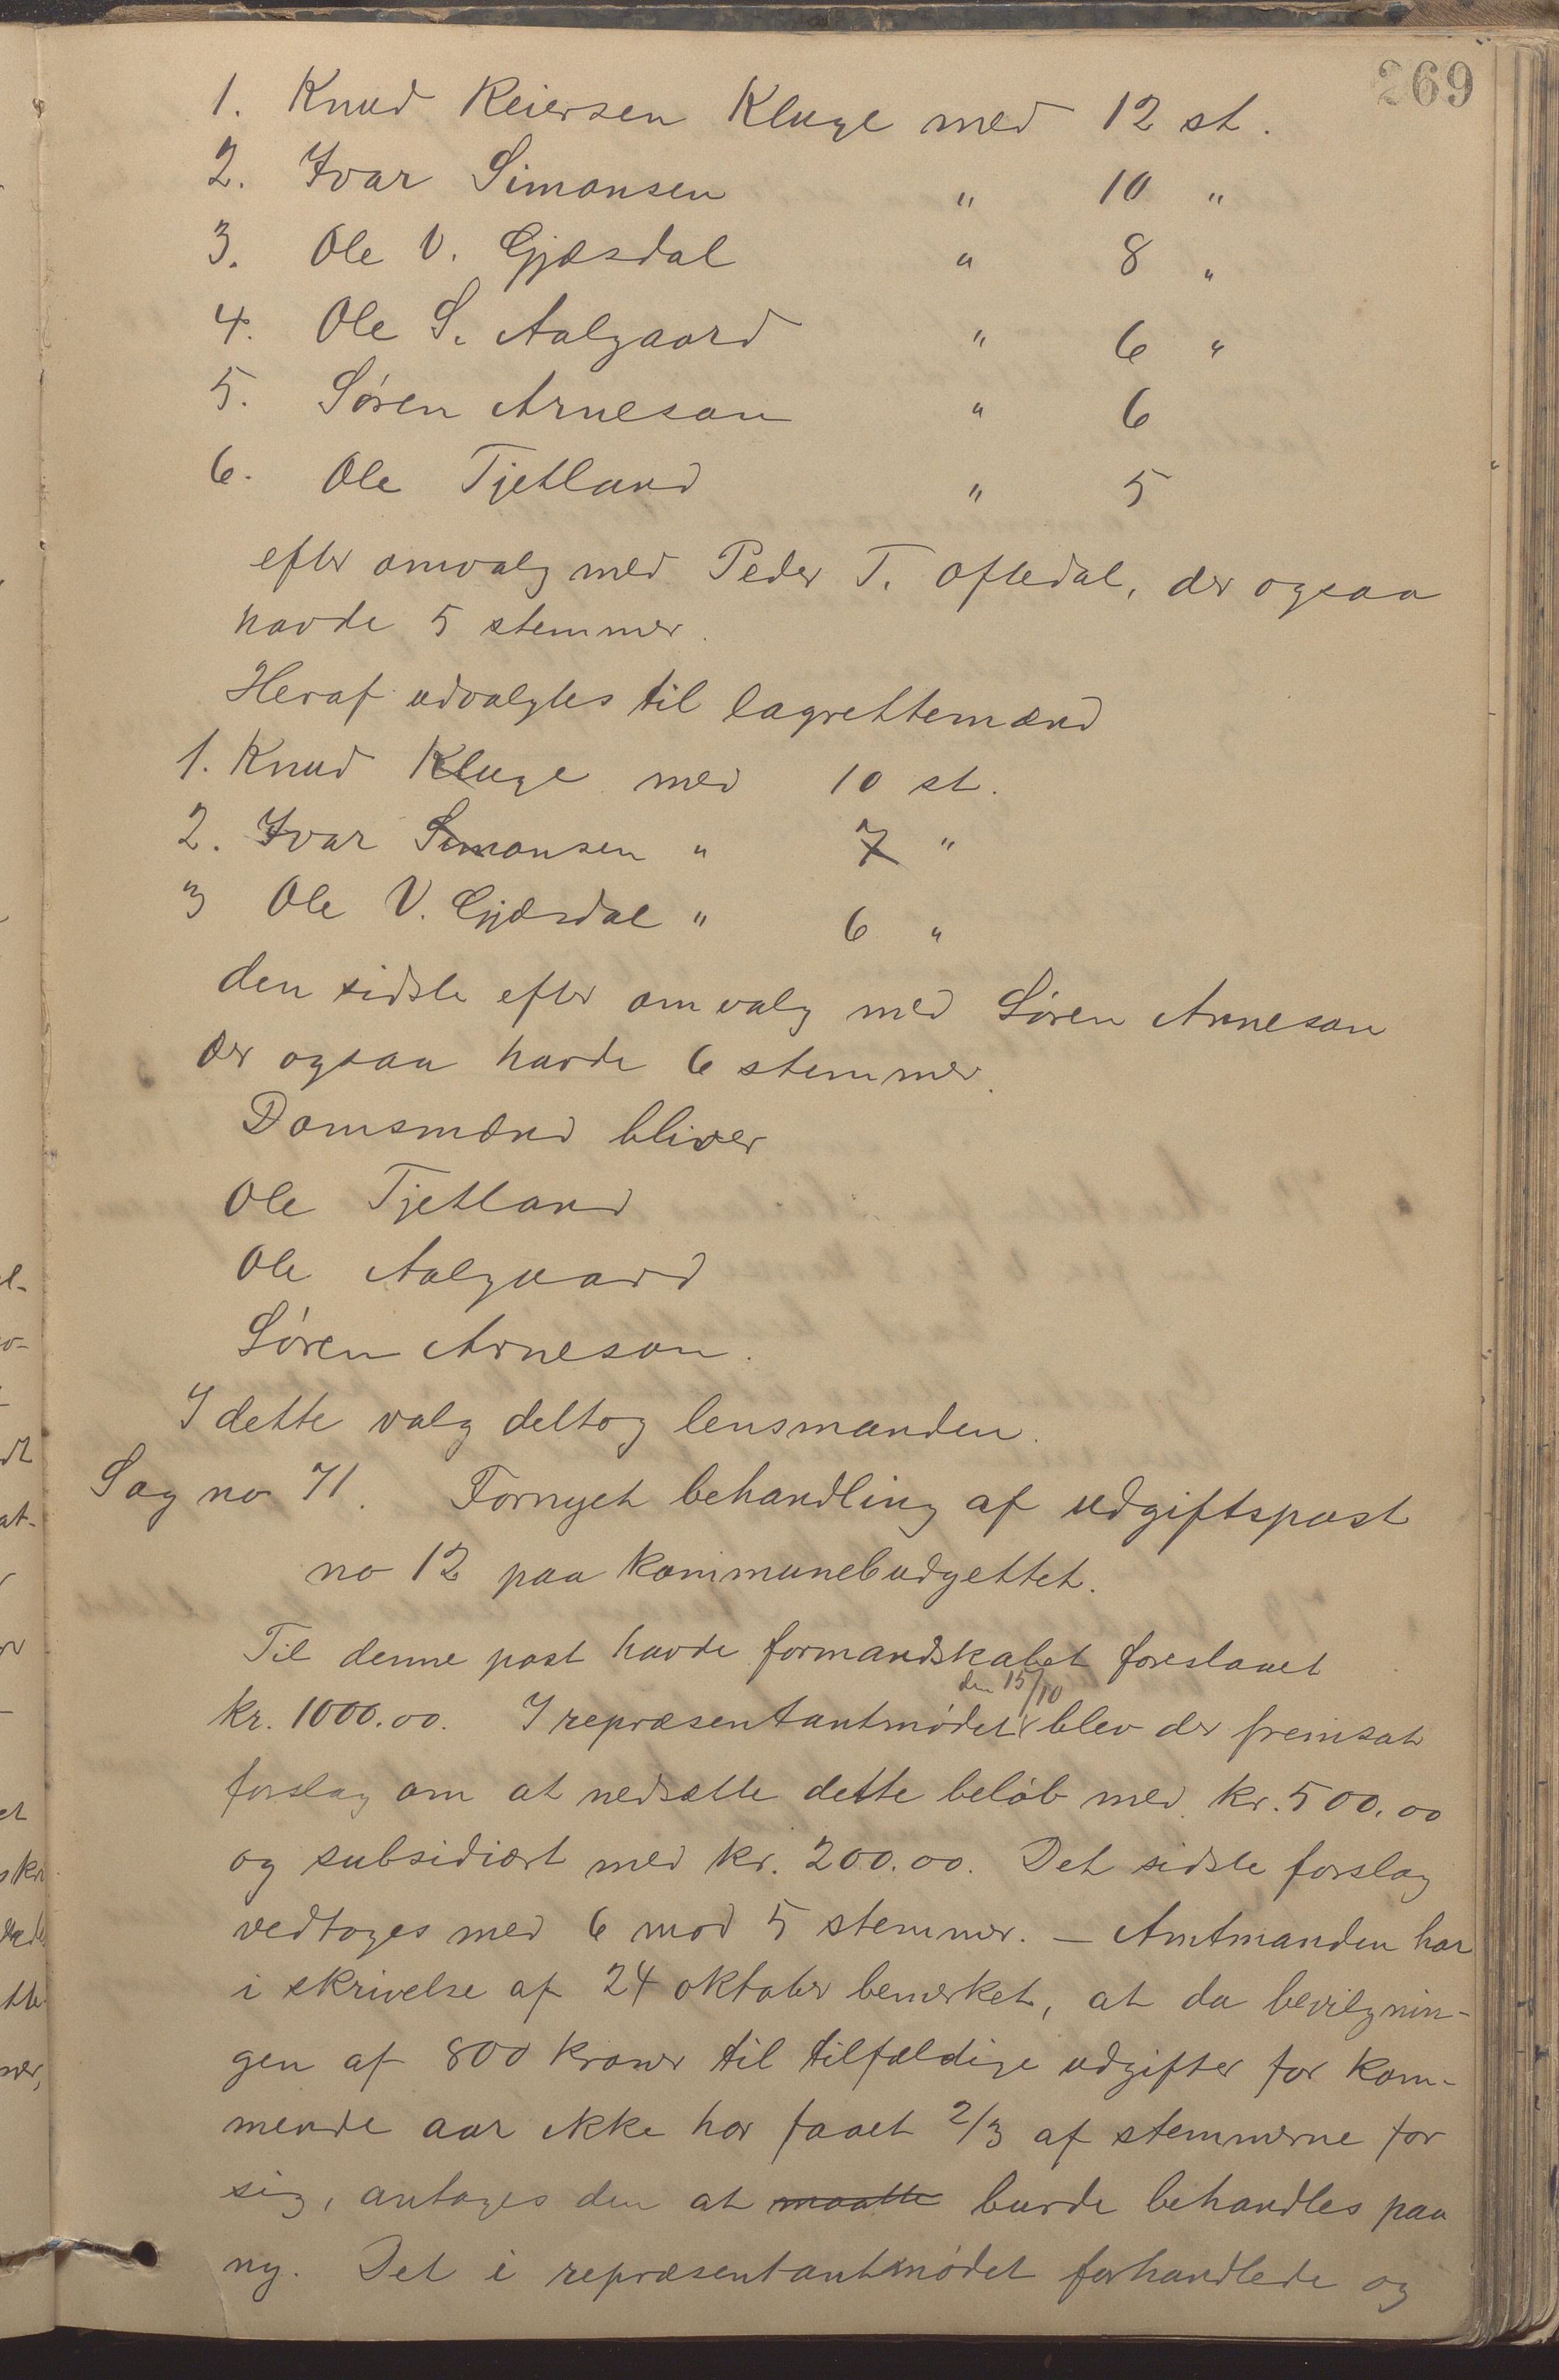 269
1. Knud Reiersen Kluge med 12 st.
2. Ivar Simonsen " 10 "
3. Ole V. Gjæsdal " 8 "
4. Ole S. Aalgaard " 6 "
5. Søren Arneson " 6
6. Ole Tjetland " 5
efter omvalg med Peder T. Oftedal, der ogsaa
havde 5 stemmer.
Heraf udvalgtes til lagrettemænd
1. Knud Kluge med 10 st.
2. Ivar Simonsen " 7 "
3 Ole V. Gjæsdal " 6 "
den sidste efter omvalg med Søren Arneson
der ogsaa havde 6 stemmer.
Domsmænd bliver
Ole Tjetland
Ole Aalgaard
Søren Arneson.
I dette valg deltog lensmanden.
Sag no 71. Fornyet behandling af udgiftspost
no 12 paa kommunebudgettet.
Til denne post havde formandskabet foreslaaet
kr. 1000.00. I repræsentantmødet den 15/10 blev der fremsat
forslag om at nedsætte dette beløb med kr. 500.00
og subsidiært med kr. 200.00. Det sidste forslag
vedtoges med 6 mod 5 stemmer. – Amtmanden har
i skrivelse af 24 oktober bemerket, at da bevilgnin-
gen af 800 kroner til tilfældige udgifter for kom-
mende aar ikke har faaet 2/3 af stemmerne for
sig, antages den at maatte burde behandles paa
ny. Det i repræsentantmødet forhandlede og